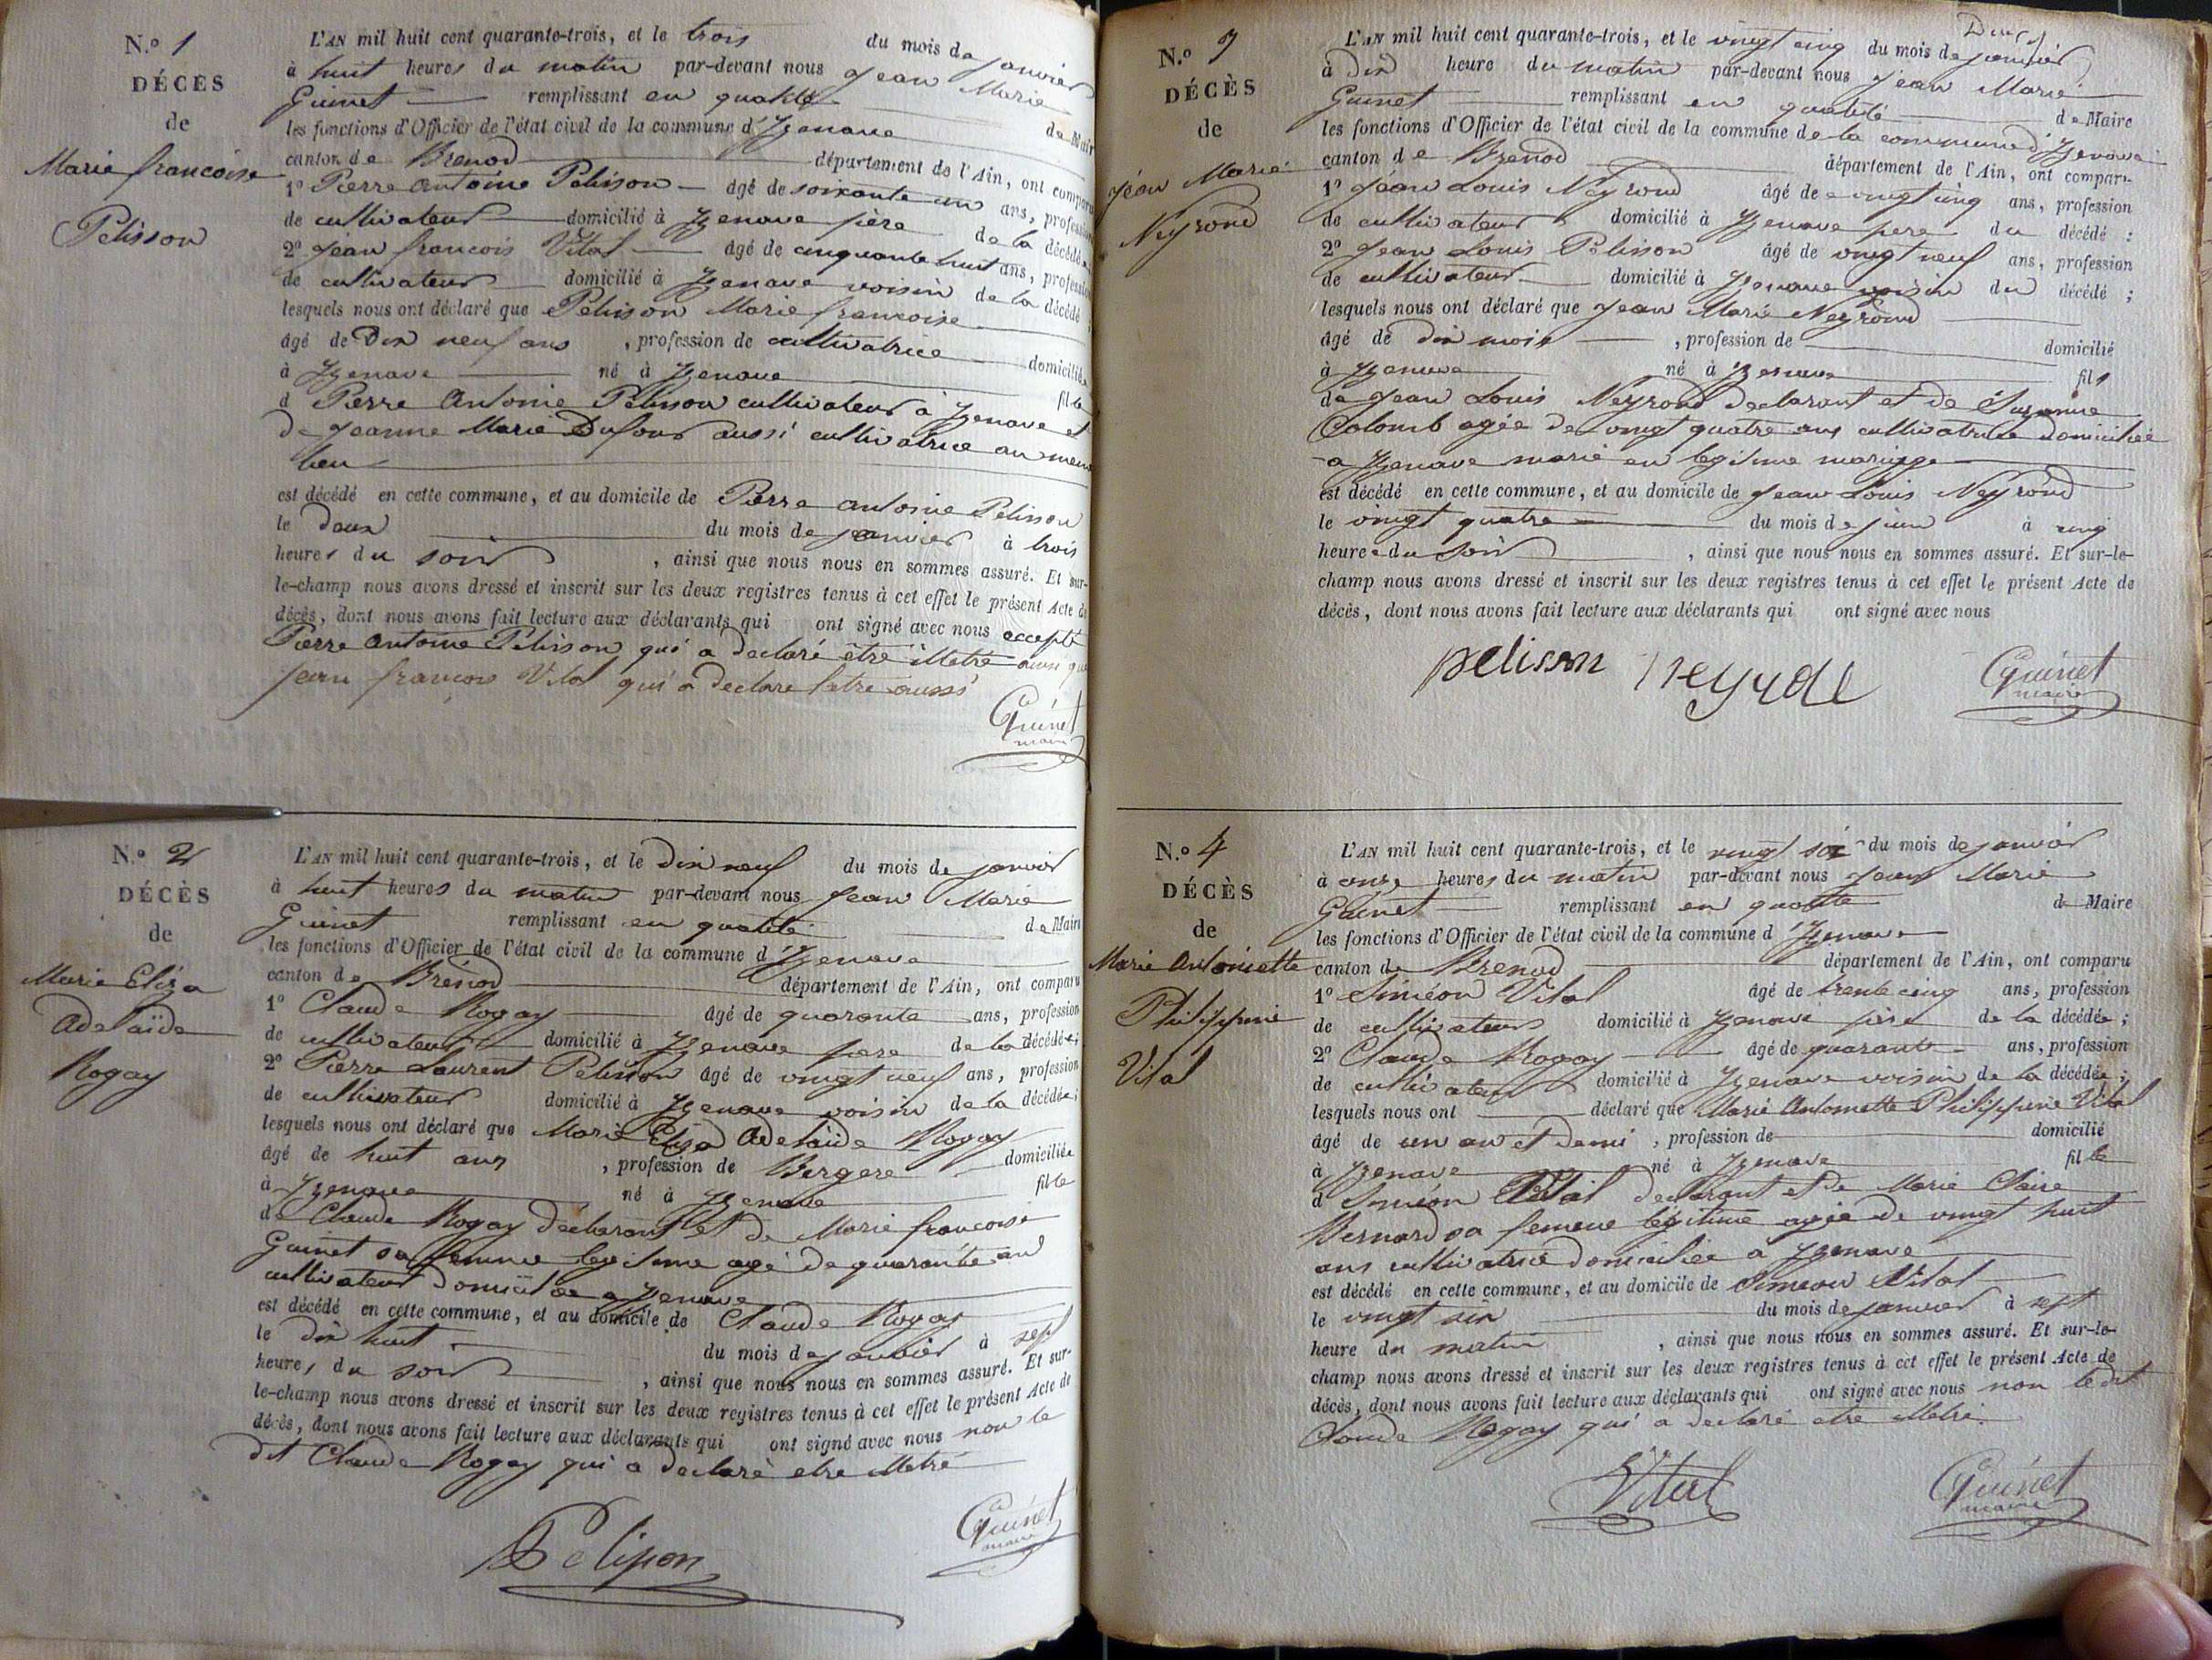 N.o 1
DÉCÈS
de
Marie francoise
Pelisson
L'AN mil huit cent quarante-trois, et le trois du mois de janvier
à huit heures du matin par-devant nous Jean Marie
Guinet remplissant en qualité de Maire
les fonctions d'Officier de l'état civil de la commune d'Izenave
canton de Brenod département de l'Ain, ont comparu
1º Pierre Antoine Pelisson âgé de soixante un ans, profession
de cultivateur domicilié à Izenave père de la décédée
2º Jean francois Vital âgé de cinquante huit ans, profession
de cultivateur domicilié à Izenave voisin de la décédée
lesquels nous ont déclaré que Pelisson Marie francoise
âgé de Dix neuf ans , profession de cultivatrice domiciliée
à Izenave né à Izenave fille
d Pierre Antoine Pelisson cultivateur à Izenave et
de Jeanne Marie Dufour aussi cultivatrice au meme
lieu
est décédé en cette commune, et au domicile de Pierre antoine Pelisson
le deux du mois de janvier à trois
heures du soir , ainsi que nous nous en sommes assuré. Et sur-
le-champ nous avons dressé et inscrit sur les deux registres tenus à cet effet le présent Acte de
décès, dont nous avons fait lecture aux déclarants qui ont signé avec nous excepté
Pierre Antoine Pelisson qui a declaré être illetré ainsi que
Jean francois Vital qui a declare l'etre aussi
Guinet
maire
N.o 2
DÉCÈS
de
Marie Eliza
Adelaïde
Rogay
L'AN mil huit cent quarante-trois, et le Dix neuf du mois de janvier
à huit heures du matin par-devant nous Jean Marie
Guinet remplissant en qualité de Maire
les fonctions d'Officier de l'état civil de la commune d'Izenave
canton de Brénod département de l'Ain, ont comparu
1º Claude Rogay âgé de quarante ans, profession
de cultivateur domicilié à Izenave pere de la décédée;
2º Pierre Laurent Pelisson âgé de vingt neuf ans, profession
de cultivateur domicilié à Izenave voisin de la décédée;
lesquels nous ont déclaré que Marie Eliza Adelaïde Rogay
âgé de huit ans , profession de Bergere domiciliée
à Izenave né à Izenave fille
de Claude Rogay déclarant et de Marie francoise
Guinet sa femme legitime agé de quarante ans
cultivateur domiciliée a Izenave
est décédé en cette commune, et au domicile de Claude Rogay
le dix huit du mois de janvier à sept
heures du soir , ainsi que nous nous en sommes assuré. Et sur-
le-champ nous avons dressé et inscrit sur les deux registres tenus à cet effet le présent Acte de
décès, dont nous avons fait lecture aux déclarants qui ont signé avec nous non le
dit Claude Rogay qui a declaré etre illetré
Pelisson
Guinet
maire
N.o 3
DÉCÈS
de
Jean Marie
Neyroud
L'AN mil huit cent quarante-trois, et le vingt cinq du mois de janvier
à Dix heure du matin par-devant nous Jean Marie
Guinet remplissant en qualité de Maire
les fonctions d'Officier de l'état civil de la commune de la commune d'Izenave
canton de Brénod département de l'Ain, ont comparu
1º Jean Louis Neyroud âgé de vingt cinq ans, profession
de cultivateur domicilié à Izenave pere du décédé :
2º Jean Louis Pelisson âgé de vingt neuf ans, profession
de cultivateur domicilié à Izenave voisin du décédé ;
lesquels nous ont déclaré que Jean Marie Neyroud
âgé de dix mois , profession de domicilié
à Izenave né à Izenave fils
de Jean Louis Neyroud declarant et de Suzanne
Colomb agée de vingt quatre ans cultivatrice domiciliée
a Izenave marié en legitime mariage
est décédé en cette commune, et au domicile de Jean Louis Neyroud
le vingt quatre du mois de à cinq
heure du soir , ainsi que nous nous en sommes assuré. Et sur-le-
champ nous avons dressé et inscrit sur les deux registres tenus à cet effet le présent Acte de
décès, dont nous avons fait lecture aux déclarants qui ont signé avec nous
pelisson
Guinet
maire
N.o 4
DÉCÈS
de
Marie Antoinette
Philippine
Vital
L'AN mil huit cent quarante-trois, et le vingt six du mois de janvier
à onze heures du matin par-devant nous Jean Marie
Guinet remplissant en qualité de Maire
les fonctions d'Officier de l'état civil de la commune d'Izenave
canton de Brenod département de l'Ain, ont comparu
1º Siméon Vital âgé de trente cinq ans, profession
de cultivateur domicilié à Izenave père de la décédée;
2º Claude Rogay âgé de quarante ans, profession
de cultivateur domicilié à Izenave voisin de la décédée;
lesquels nous ont déclaré que Marie Antoinette Philippine Vital
âgé de un an et demi , profession de domicilié
à Izenave né à Izenave fille
d Siméon Vital declarant et de Marie Claire
Bernard sa femme légitime agée de vingt huit
ans cultivatrice domiciliée à Izenave
est décédé en cette commune, et au domicile de Simeon Vital
le vingt six du mois de janvier à sept
heure du matin , ainsi que nous nous en sommes assuré. Et sur-le-
champ nous avons dressé et inscrit sur les deux registres tenus à cet effet le présent Acte de
décès, dont nous avons fait lecture aux déclarants qui ont signé avec nous non le dit
Claude Rogay qui a declaré etre illetré.
Vital
Guinet
maire